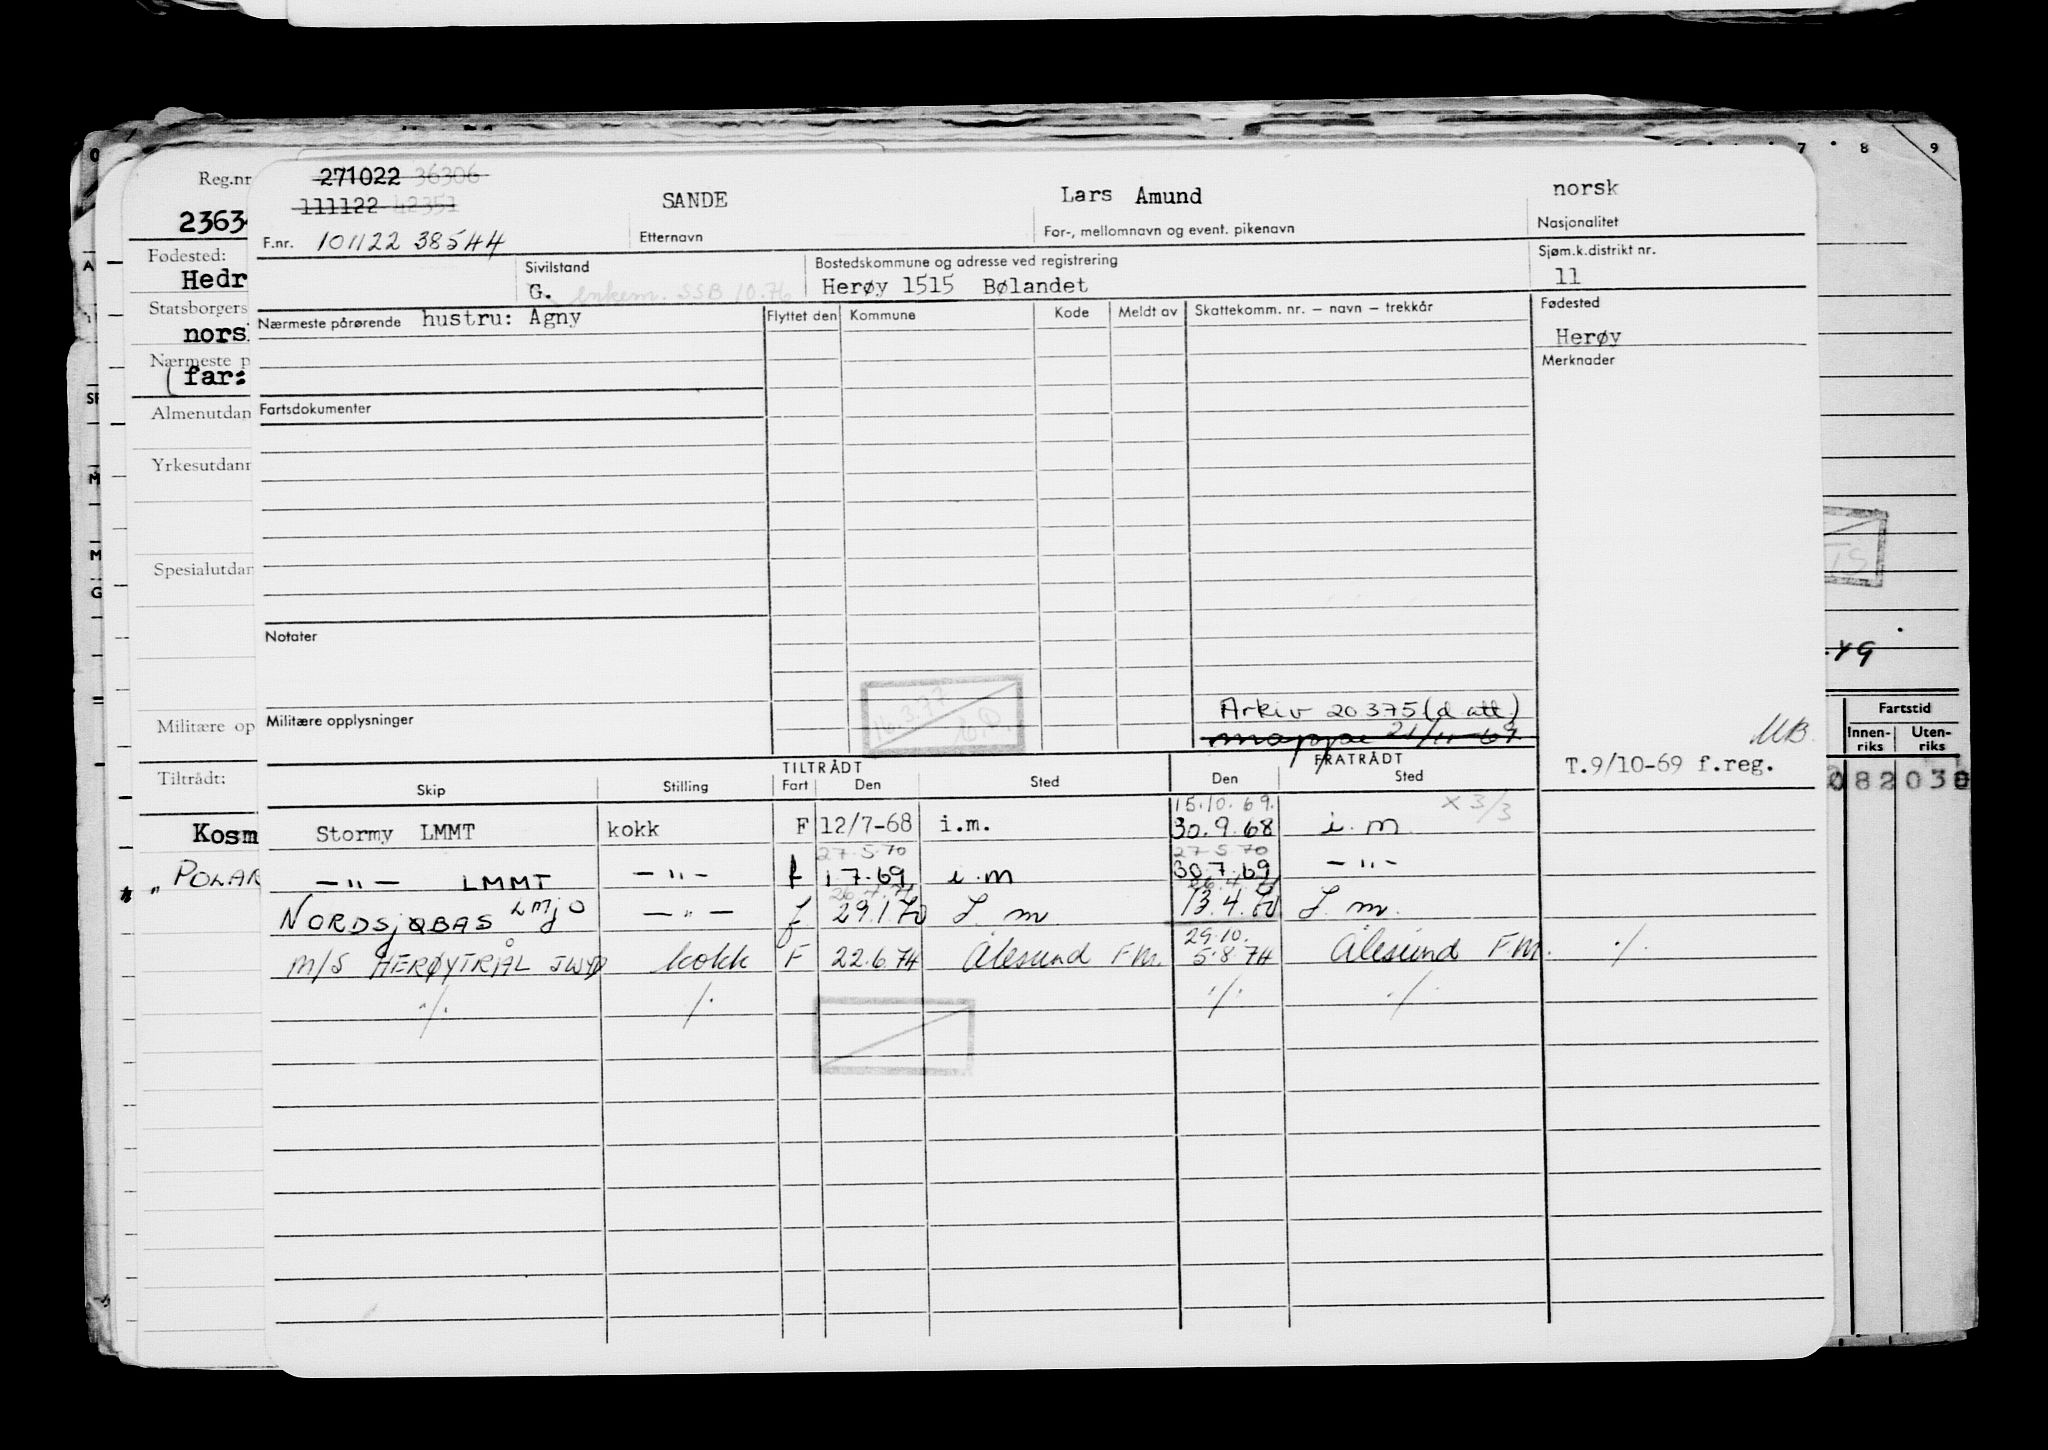 271022 36306
111122 42351
F.nr. 101122 38544
SANDE
Etternavn
Lars Amund
For-, mellomnavn og event. pikenavn
norsk
Nasjonalitet
Sivilstand
G. enkem. SSB 10.76
Bostedskommune og adresse ved registrering
Herøy 1515 Bølandet
Sjøm.k.distrikt nr.
11
Nærmeste pårørende hustru: Agny
Flyttet den Kommune Kode Meldt av Skattekomm. nr. – navn – trekkår
Fødested
Herøy
Merknader
Fartsdokumenter
Notater
Militære opplysninger
16.3.77
Arkiv 20375 (d att)
mappe 21/11-69
MB.
T.9/10-69 f.reg.
TILTRÅDT FRATRÅDT
Skip Stilling Fart Den Sted Den Sted
15.10.69. x 3/3
Stormy LMMT kokk F 12/7-68 i.m. 30.9.68 i.m.
27.5.70 27.5.70
—"— LMMT —"— f 1.7.69 i.m 30.7.69 —"—
NORDSJØBAS LMJO —"— f 29.1.70 I.m. 13.4.70 I.m.
29.10.
M/S HERØYTRÅL JWYD kokk F 22.6.74 Ålesund F.M. 5.8.74 Ålesund F.M. ./.
./. ./. ./. ./.
Reg.nr
2363
Fødested:
Hedr
Statsborgers
nors
Nærmeste p
(far:
Almenutdan
Yrkesutdann
Spesialutdan
Militære op
Tiltrådt:
Kosm
" POLAR
O
A
SF
M
M
G
7 8 9
TS
.49
Fartstid
Innen-riks Uten-riks
082030